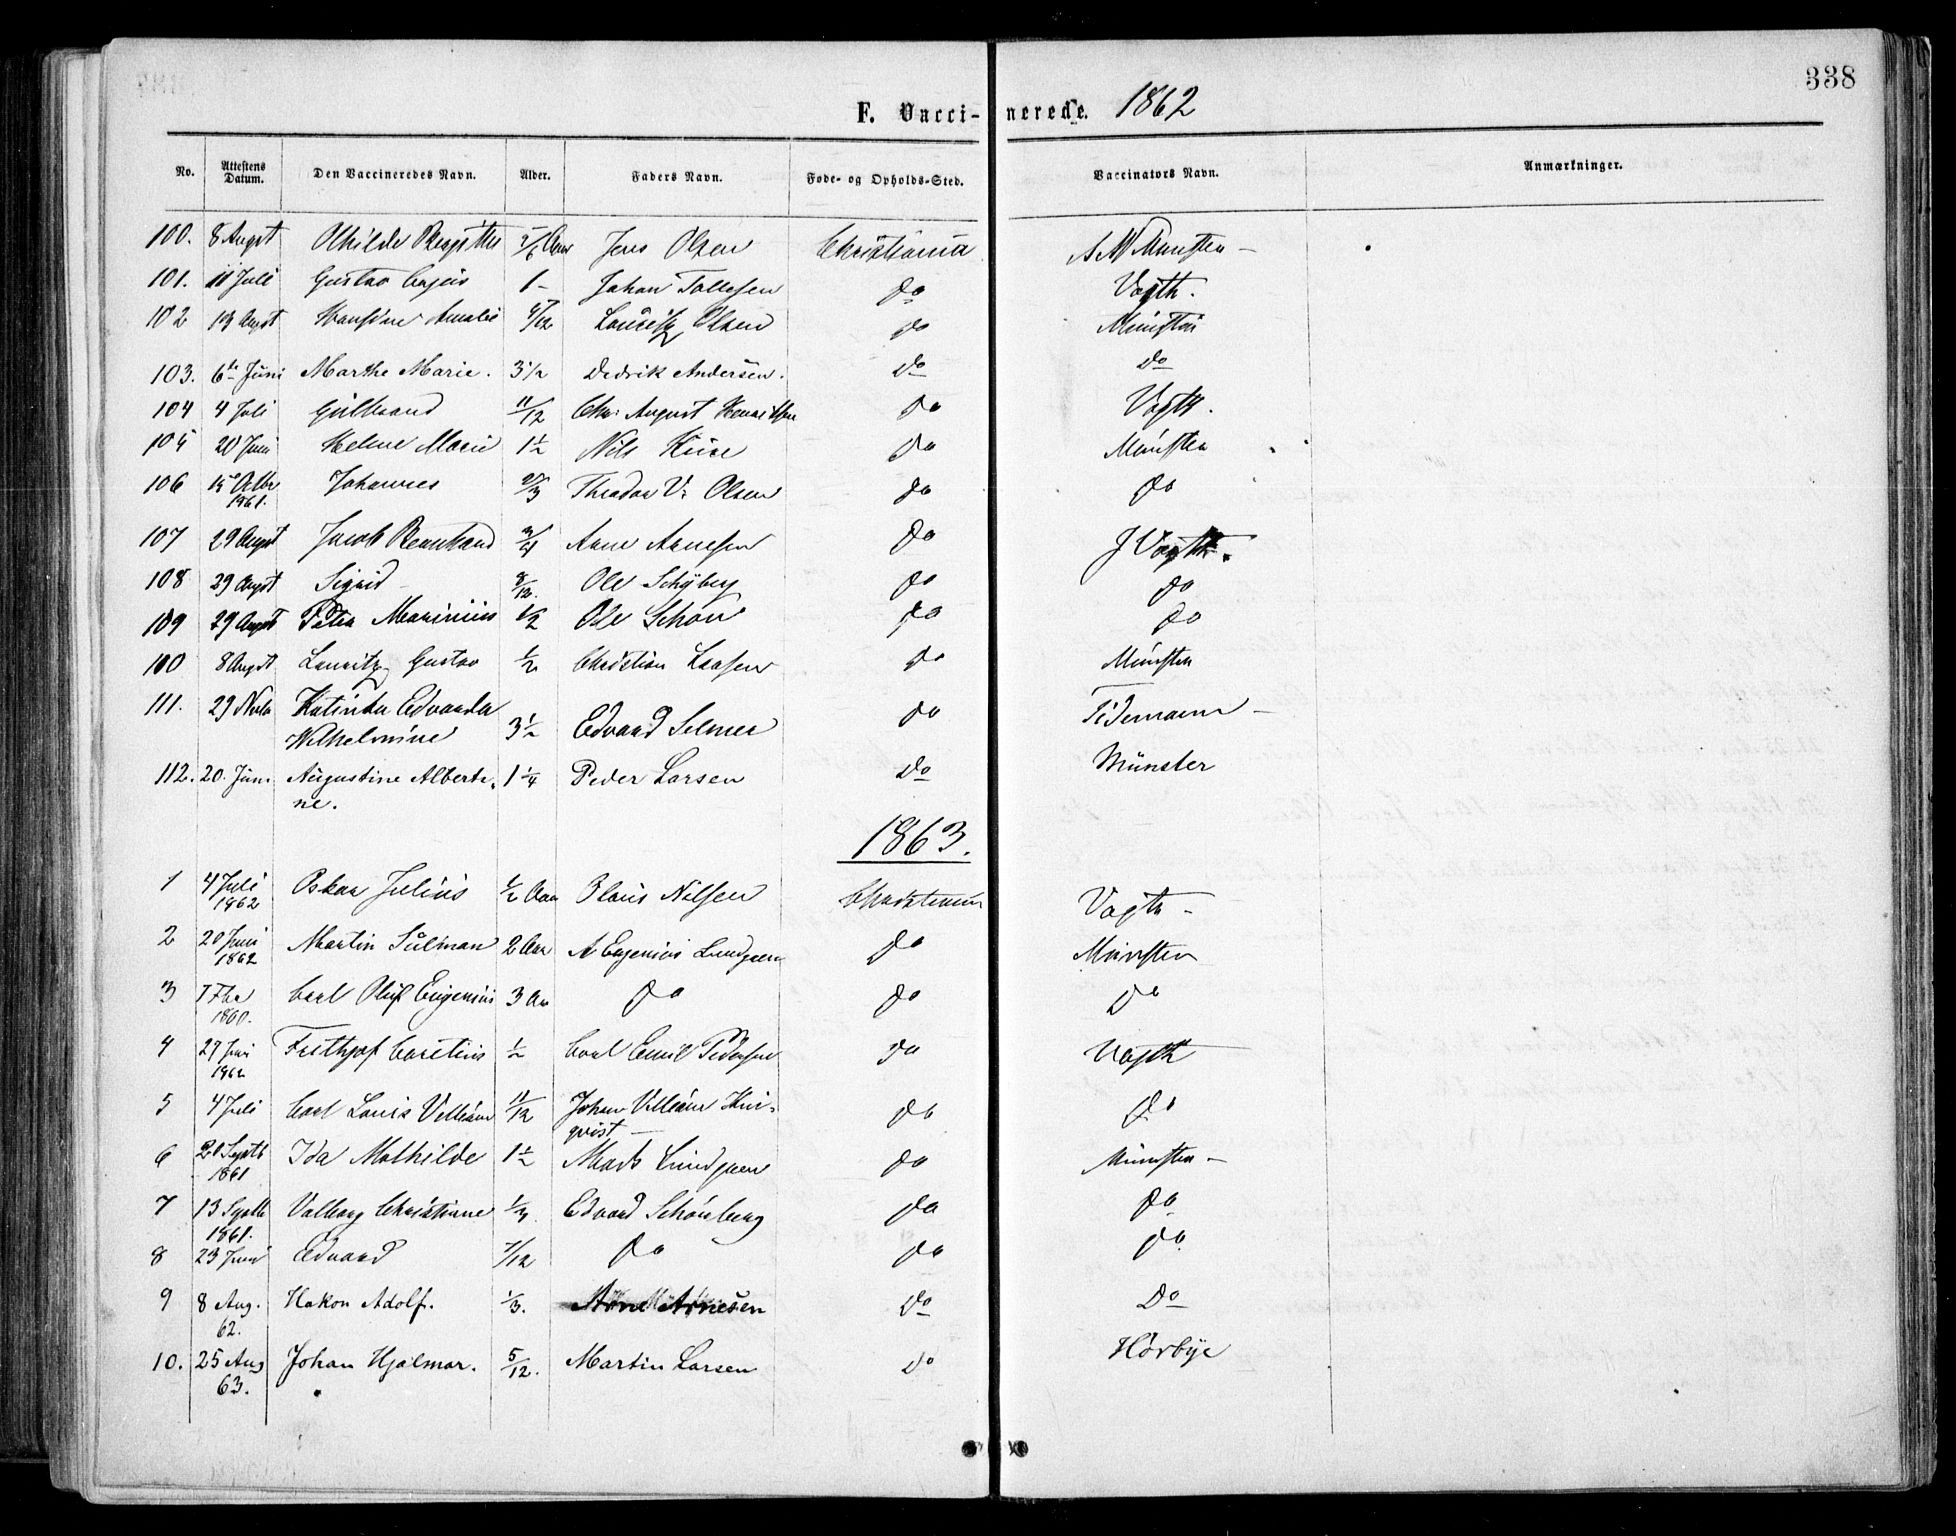 338
F. Vaccinerede. 1862
No. Attestens Datum. Den Vaccineredes Navn. Alder. Faders Navn. Føde- og Opholds-Sted. Vaccinators Navn. Anmærkninger.
100. 8 Augst Othilde Jens Olsen Christiania Munster
101. 11 Juli Gustav 1 - Johan Tollefsen do Vogth.
102 13 Augst Hansine Amalie /12 Lauritz Olsen do Münster
103. 6te Juni Marthe Marie. 3 1/2 Dedrik Andersen. Do Do
104 4 Juli Gulbrand 11/12 Chr. August do Vogth.
105 20 Juni Helene Marie 1 1/2 Nils do Münster
106 15 1861. Johannes 2/3 Theodor Olsen do do
107 29 Augst Jacob Bernhard 3/4 Arne Arnesen do J Vogth.
108 29 Augst Sigrid - 8/12. Ole Schyberg do do
109 29 Augst Petra 1/2 Ole Schou do do
100 8 Augst Lauritz Gustav 1/2 Christian Larsen do Münster
111. 29 Katinka Edvarda
Wilhelmine 3 1/2 Edvard Selmer do Tidemann -
112. 20. Juni Augustine Alberti-
ne. 1 1/4 Peder Larsen Do Münster
1863.
1 4 Juli 1862 Oskar Julius 1/2 Aar Olaus Nilsen Christiania Vogth -
2 20 Juni 1862 Martin 2 Aar A Eugenius Lundgren do Münster
3 1860. Carl Oluf Eugenius 3 Aar do do do
4 27 Juni 1862 Frithjof 1/2 Carl Emil Pedersen do Vogth
5 4 Juli Carl Louis Villiam 11/12 Johan Villiam
qvist - do do
6 20 Septb 1861 Ida Mathilde 1 1/2 Mads Lundgren do Münster -
7 13 Septb 1861. Valborg Christiane 1/3. Edvard Schønberg do do
8 23 Juni Edvard 7/12 do do do
9 8 Aug. 62. Hakon Adolf. 1/3. Arne Arnesen Do Do
10. 25 Aug 63. Johan Hjalmar. 5/12. Martin Larsen Do Hörbye